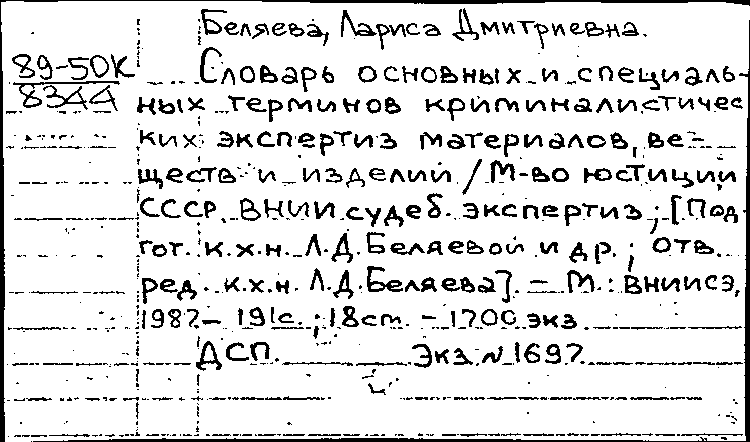 Беляева, Лариса Дмитриевна.
89-50К
8344
Словарь основных и специаль-
ных терминов криминалистичес
ких экспертиз материалов, ве-
ществ и изделий / М-во юстиции
СССР, ВНИИ судеб. экспертиз; [Под-
гот. к.х.н. Л.Д. Беляевой и др.; Отв.
ред. к.х.н. Л.Д. Беляева]. - М.: ВНИИСЭ,
1987. - 191с.; 18см. - 1700 экз.
ДСП. Экз. N 1697.